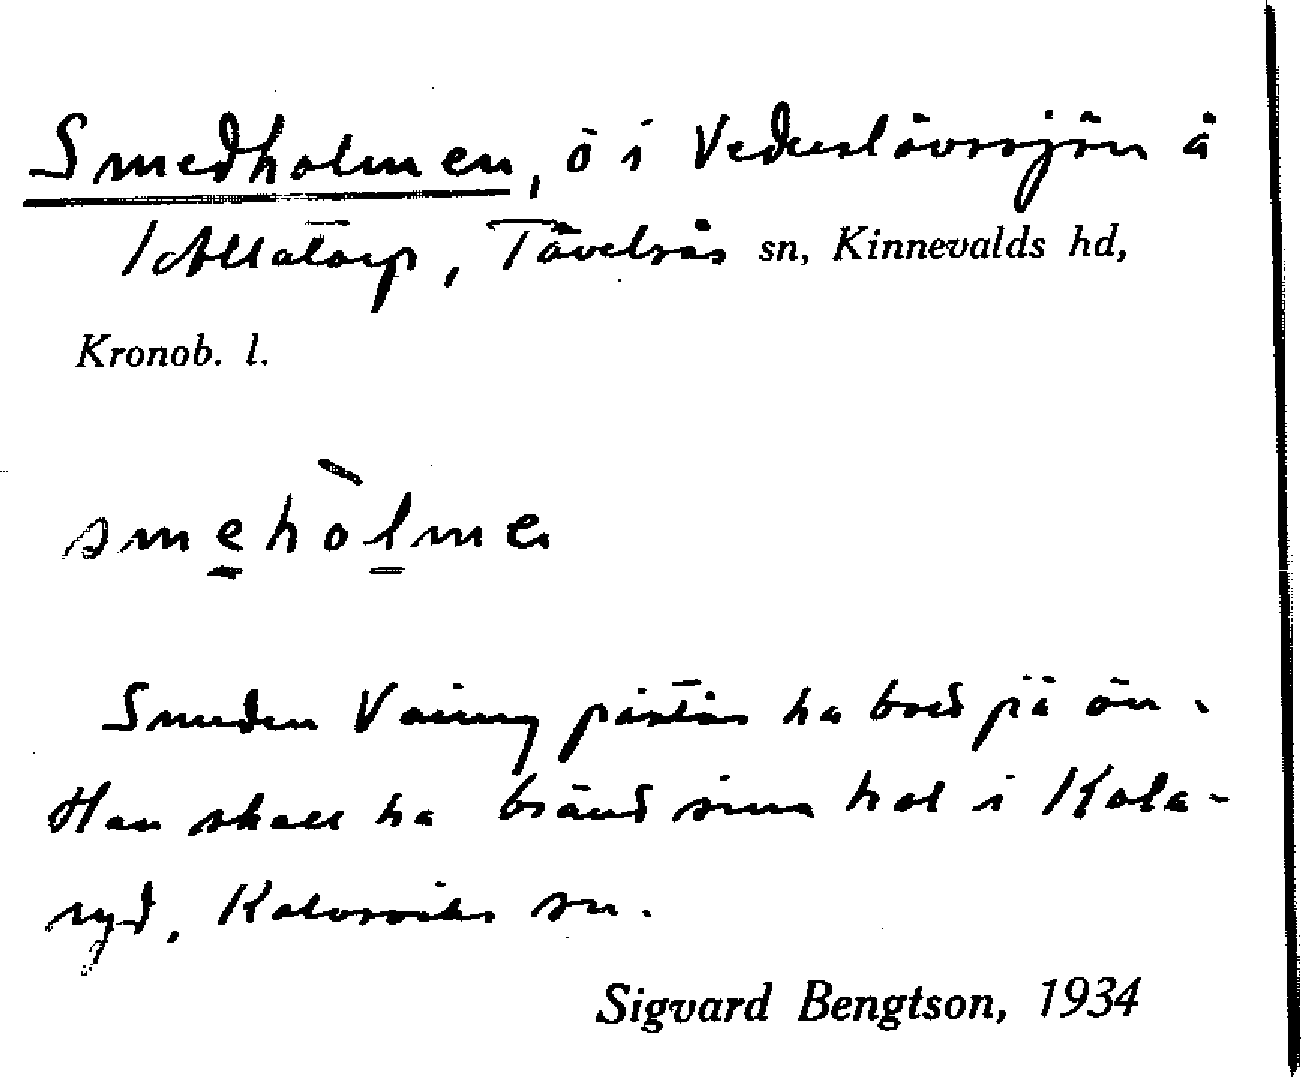 Smedholmen, ö i Vederslövssjön å
1 Allatorp, Tävelsås sn, Kinnevalds hd,
Kronob. l.
smeholmen
Smeden påstås ha bott på ön.
Han skall ha bränt sina kol i Kola-
ryd, Kalvsviks sn.
Sigvard Bengtson, 1934